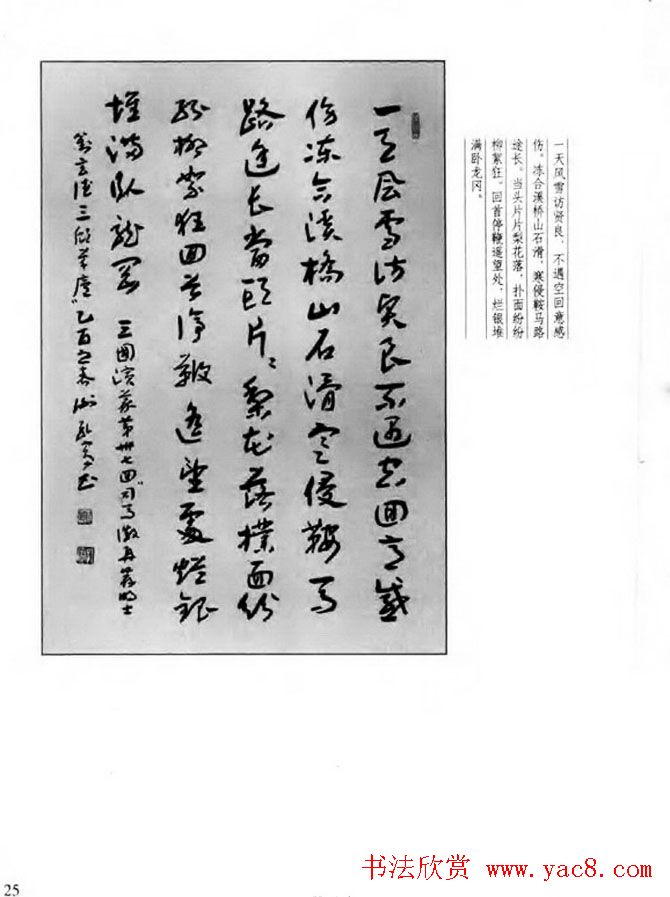 一天风雪访贤良，不遇空回意感
伤。冻合溪桥山石滑，寒侵鞍马路
途长。当头片片梨花落，扑面纷纷
柳絮狂。回首停鞭遥望处，烂银堆
满卧龙冈。
一天風雪访贤良不遇空回意感
伤冻合溪橋山石滑寒侵鞍马
路途长当頭片〻梨花落撲面纷
纷柳絮狂回首停鞭遥望處烂銀
堆满臥龍岡 三國演義第卅七回“司马徽再荐名士
劉玄德三顾草廬”乙酉之春
25
书法欣赏 www.yac8.com